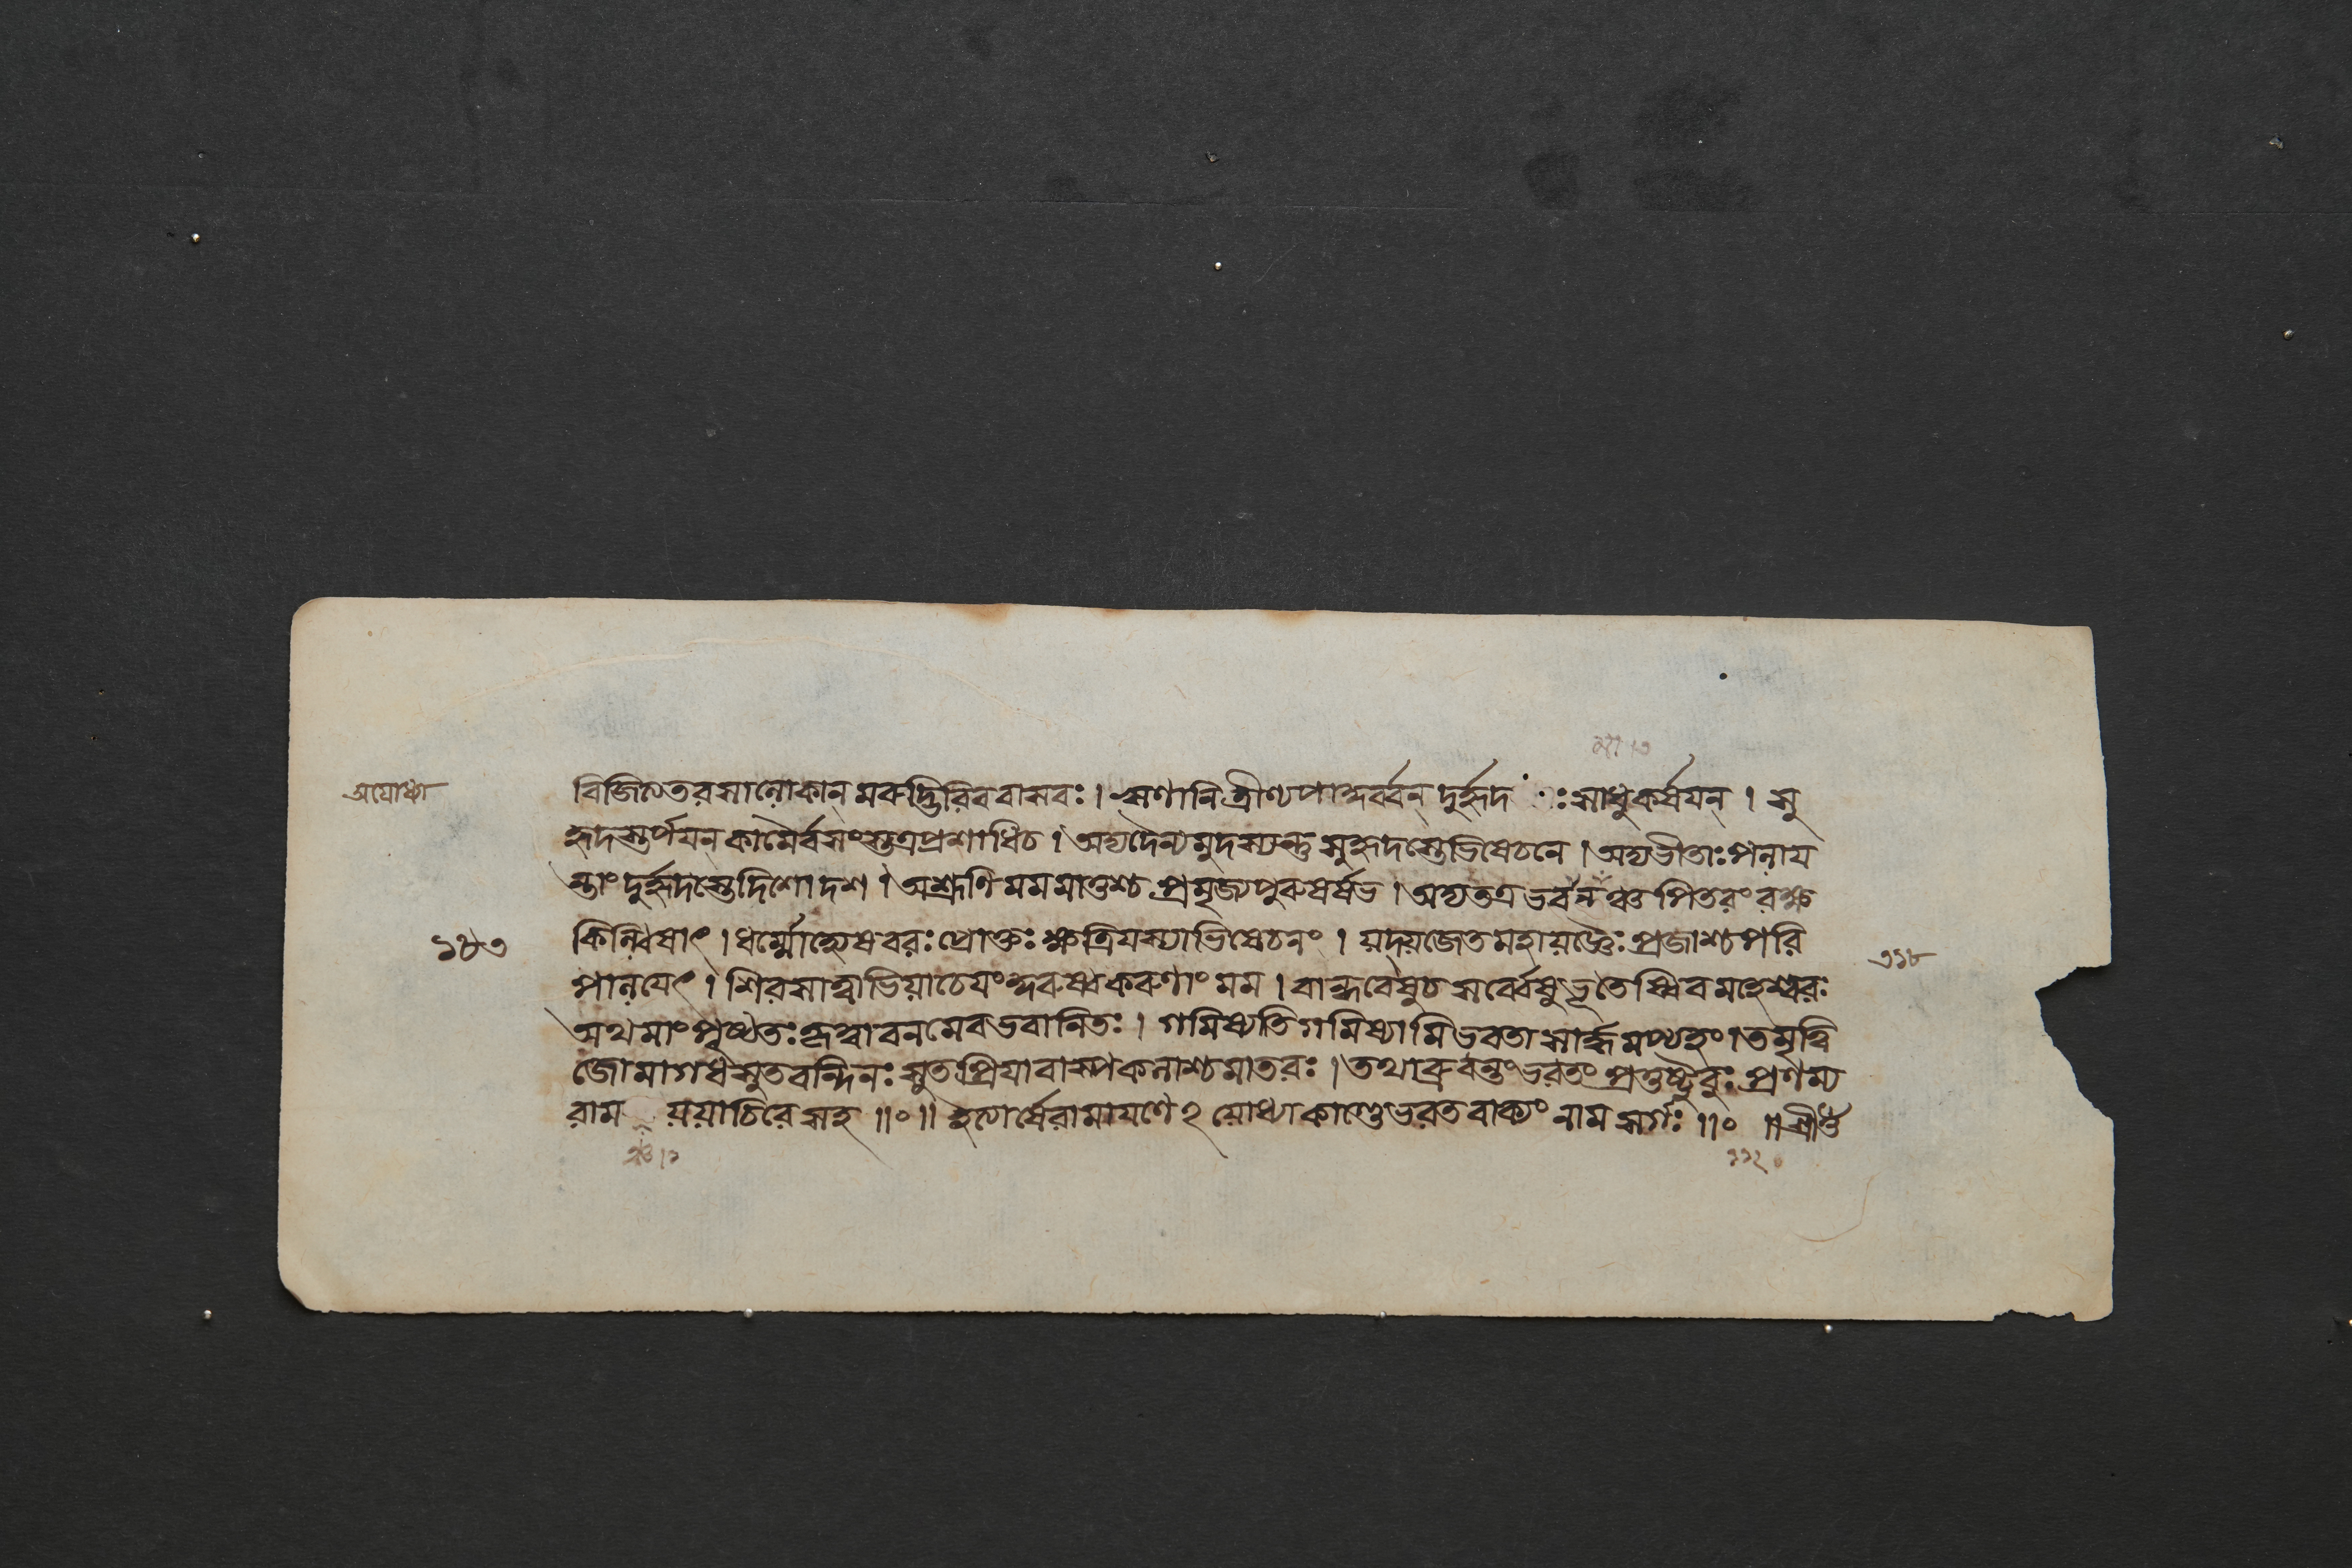 অযোধ্যা
বিজিত্যতরসালোকান্ মরুদ্ভিরিববাসবঃ । ঋণানি ত্রীণ্যপাকুর্ব্বন্ দুর্হৃদঃ সাধুকর্ষয়ন্ । সু
হৃদস্তর্পয়ন্ কামৈর্বসংস্তত্রপ্রশাধিচ । অদ্যদৈন্যমুদস্যন্তু সুহৃদস্তেভিষেচনে । অদ্যভীতাঃ পলায়
ন্তাং দুর্হৃদস্তেদিশোদশ । অশ্রূণি মমমাতুশ্চ প্রমৃজ্যপুরুষর্ষভ । অদ্যতত্রভবন্তঞ্চ পিতরং রক্ষ
১৮৩
কিল্বিষাৎ । ধর্ম্মোহ্যেষবরঃ প্রোক্তঃ ক্ষত্রিয়স্যাভিষেচনং । যদ্যজেতমহাযজ্ঞৈঃ প্রজাশ্চপরি
৩১৮
পালয়েৎ । শিরসাত্বাভিযাচেয়ং কুরুষ্বকরুণাং মম । বান্ধবেষুচ সর্ব্বেষুভূতেষ্বিবমহেশ্বরঃ
অথমাং পৃষ্ঠতঃ কৃত্বাবনমেবভবানিতঃ । গমিষ্যতিগমিষ্যামিভবতাসার্দ্ধমপ্যহং । তমৃত্বি
জোমাগধসূতবন্দিনঃ সুতপ্রিয়াবাষ্পকলাশ্চমাতরঃ । তথাব্রুবন্তংভরতং প্রতুষ্টুবুঃ প্রণম্য
রাম যযাচিরেসহ ॥০॥ ইত্যার্ষেরামায়ণেঽযোধ্যাকাণ্ডেভরতবাক্যং নামসর্গঃ ॥০ ॥শ্রীগু
১১২